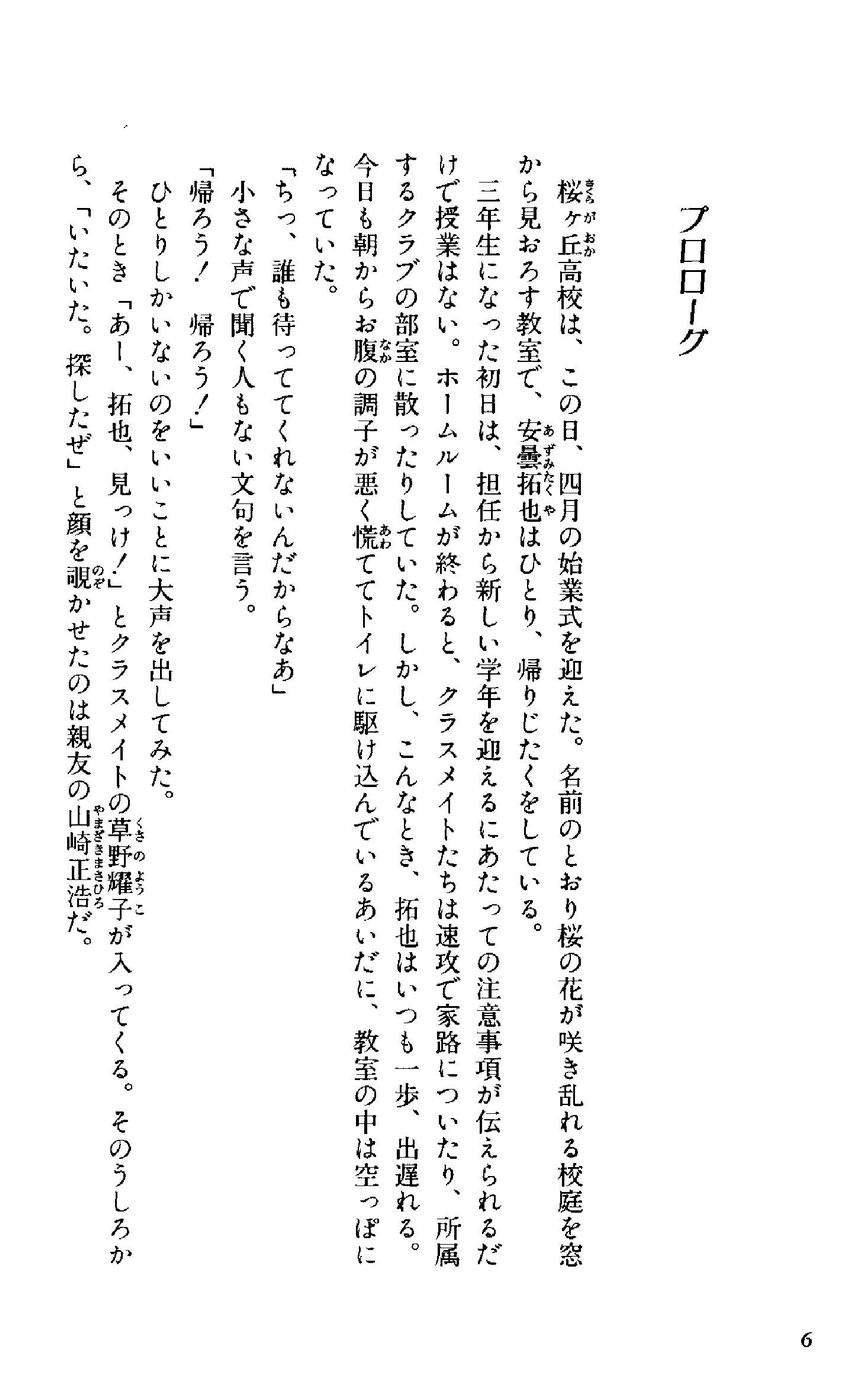 プロローグ
桜ヶ丘高校は、この日、四月の始業式を迎えた。名前のとおり桜の花が咲き乱れる校庭を窓
から見おろす教室で、安曇拓也はひとり、帰りじたくをしている。
三年生になった初日は、担任から新しい学年を迎えるにあたっての注意事項が伝えられるだ
けで授業はない。ホームルームが終わると、クラスメイトたちは速攻で家路についたり、所属
するクラブの部室に散ったりしていた。しかし、こんなとき、拓也はいつも一歩、出遅れる。
今日も朝からお腹の調子が悪く慌ててトイレに駆け込んでいるあいだに、教室の中は空っぽに
なっていた。
「ちっ、誰も待っててくれないんだからなあ」
小さな声で聞く人もない文句を言う。
「帰ろう！　帰ろう！」
ひとりしかいないのをいいことに大声を出してみた。
そのとき「あー、拓也、見っけ！」とクラスメイトの草野耀子が入ってくる。そのうしろか
ら、「いたいた。探したぜ」と顔を覗かせたのは親友の山崎正浩だ。
6